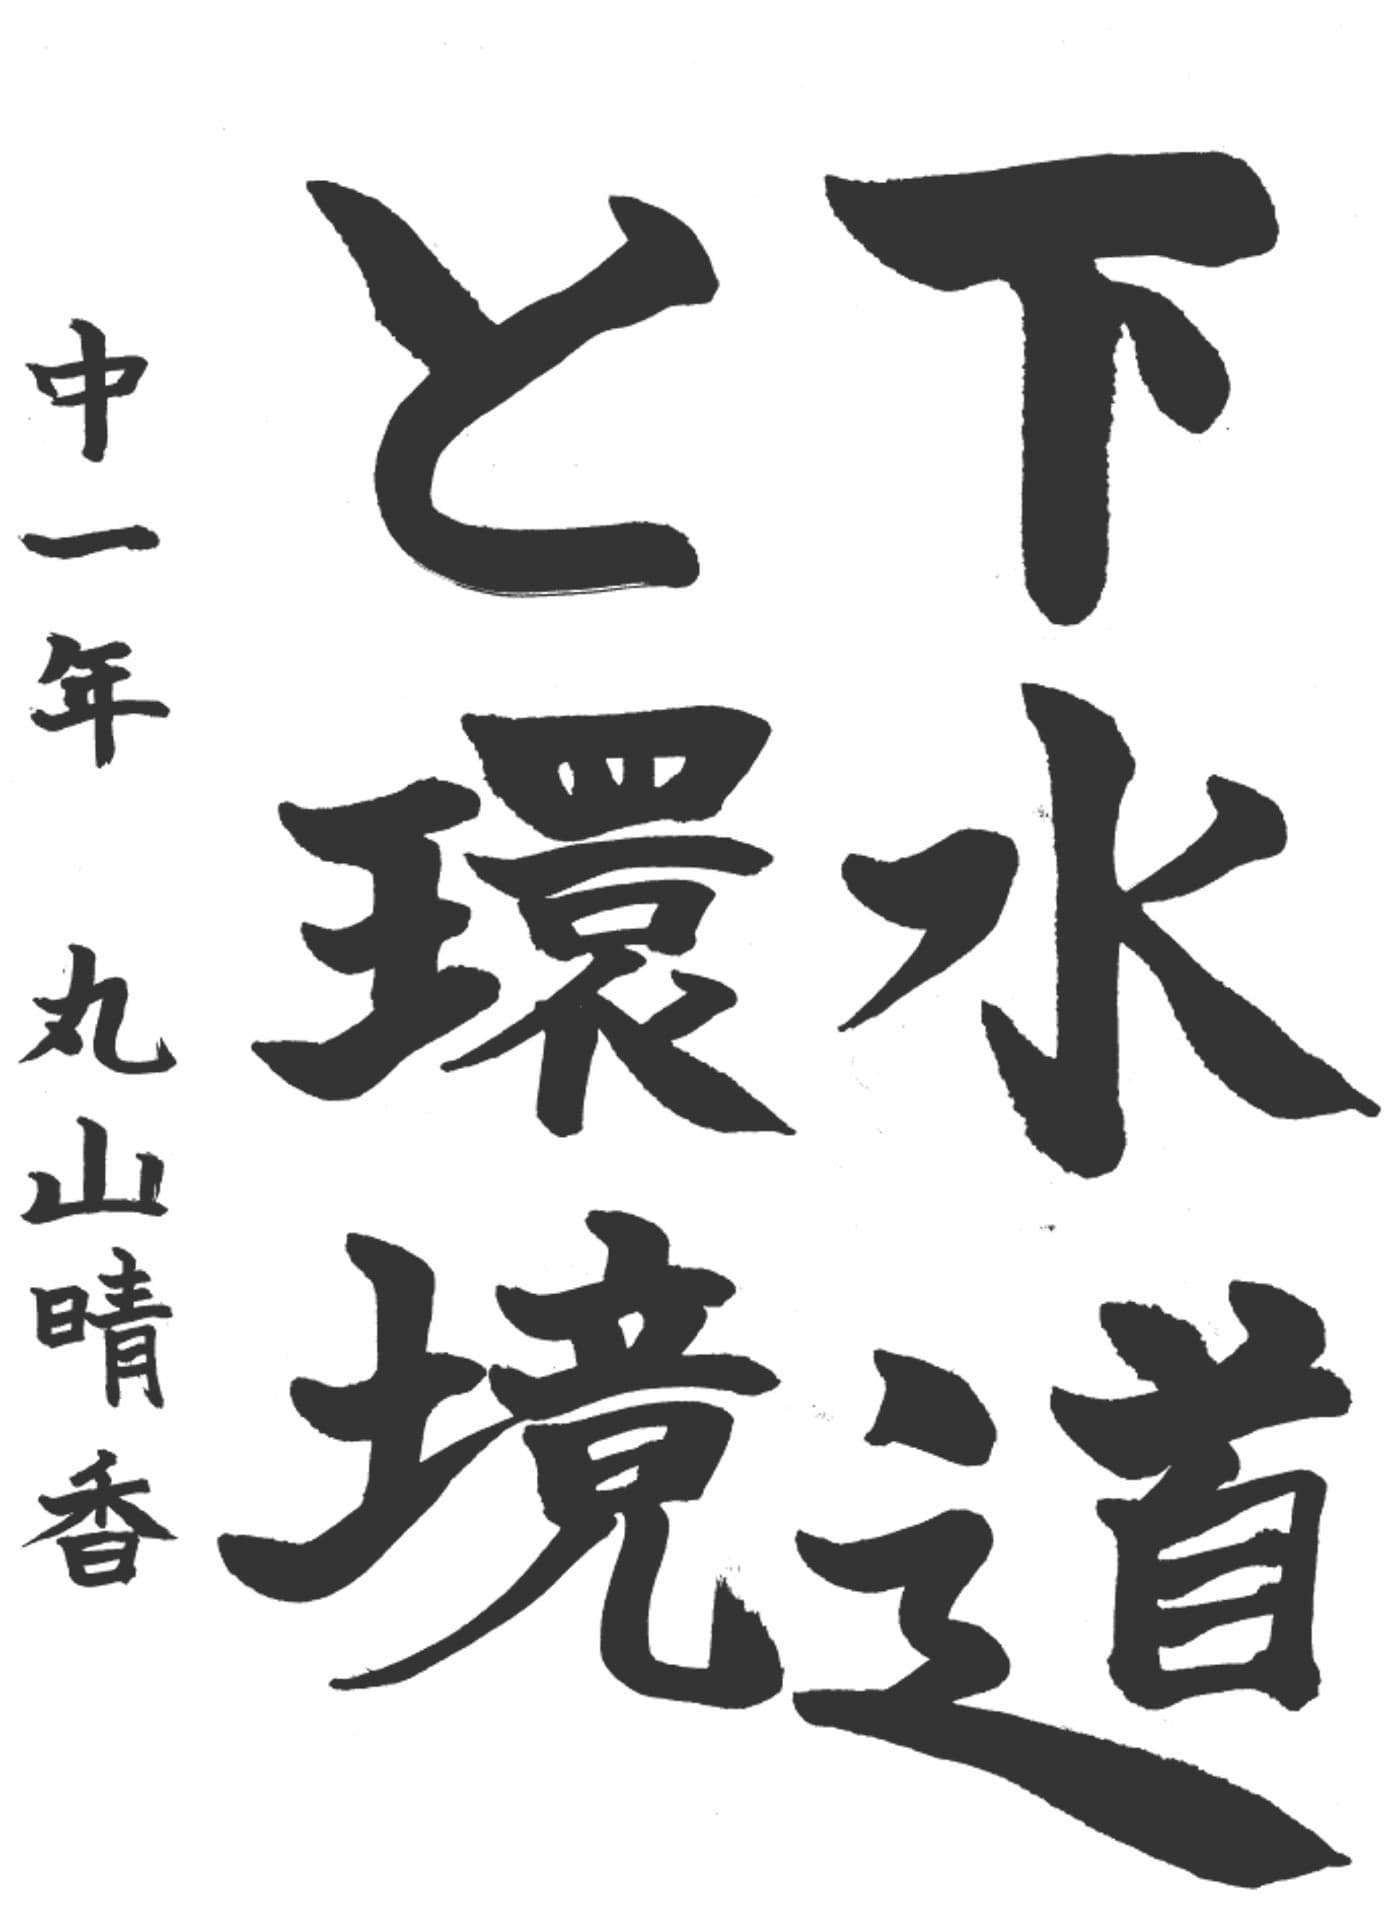 下水道
と環境
中一年 丸山晴香